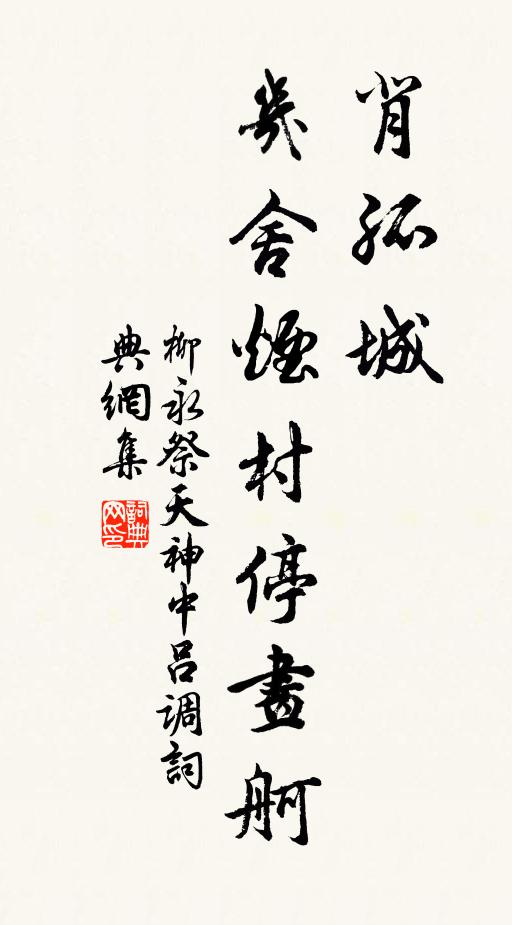 背孤城
幾舍煙村停畫舸
柳永祭天神中呂調詞
典網集
詞典
网印